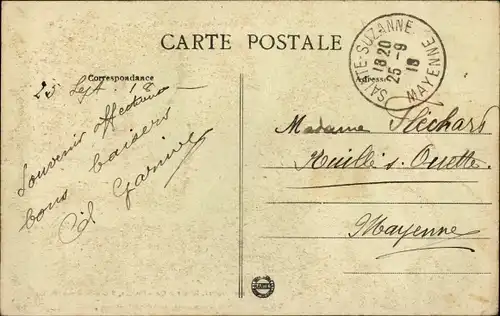 CARTE POSTALE
Correspondance
Adresse
SAINTE-SUZANNE
18 20
25-9
18
MAYENNE
25 Sept. 18
Souvenir affectueux
bons baisers
Garnier
Madame Fléchard
Nuillé s. Ouette
Mayenne